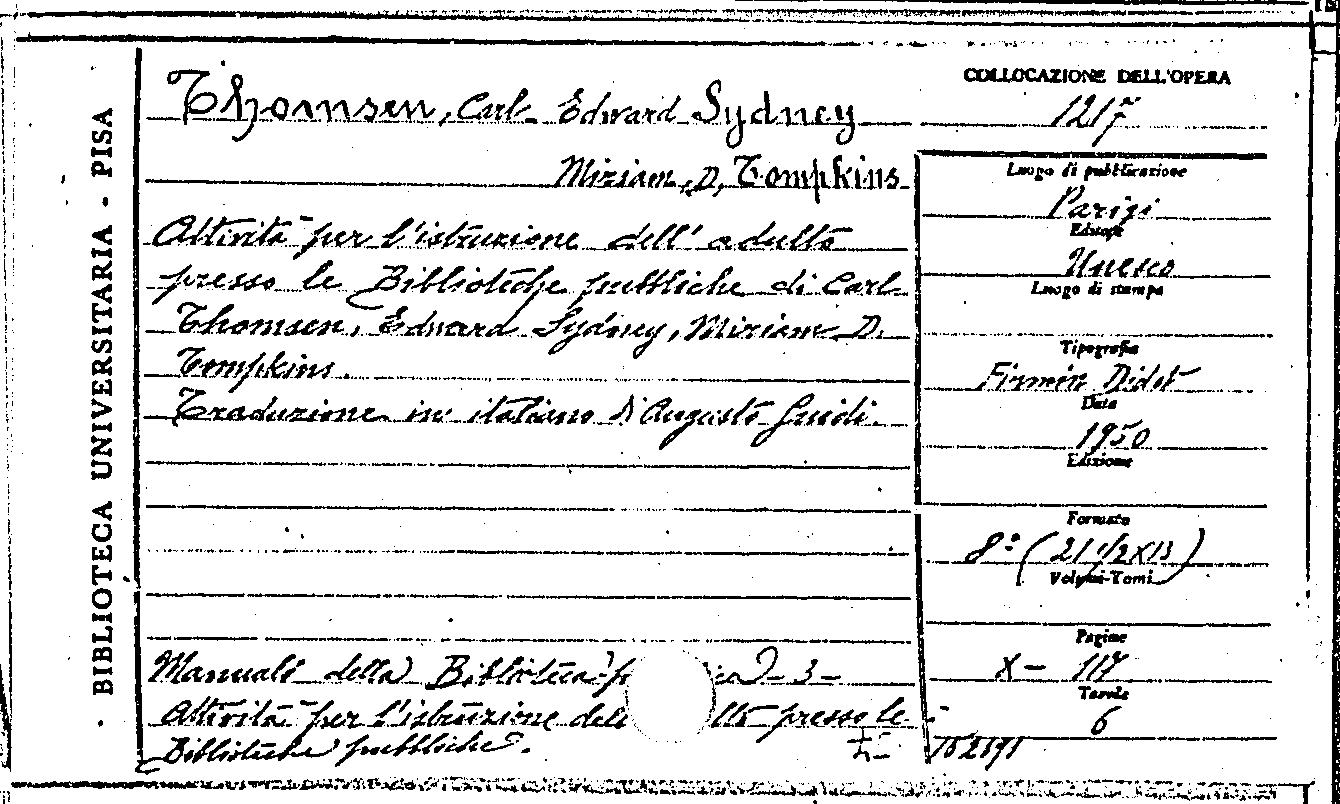 BIBLIOTECA UNIVERSITARIA - PISA
Thomsen, Carl Edward Sydney
Miriam, D, Tompkins
Attività per l'istruzione dell'adulto
presso le Biblioteche pubbliche di Carl
Thomsen, Edward Sydney, Miriam D.
Tompkins.
Traduzione in italiano di Augusto Guidi.
Manuali della Biblioteca - 3 -
Attività per l'istruzione presso le
Biblioteche pubbliche.
COLLOCAZIONE DELL'OPERA
1217
Luogo di pubblicazione
Parigi
Editore
Unesco
Luogo di stampa
Tipografia
Firmin Didot
Data
1950
Edizione
Formato
8° (21 1/2 x 13)
Volumi-Tomi
Pagine
X - 117
Tavole
6